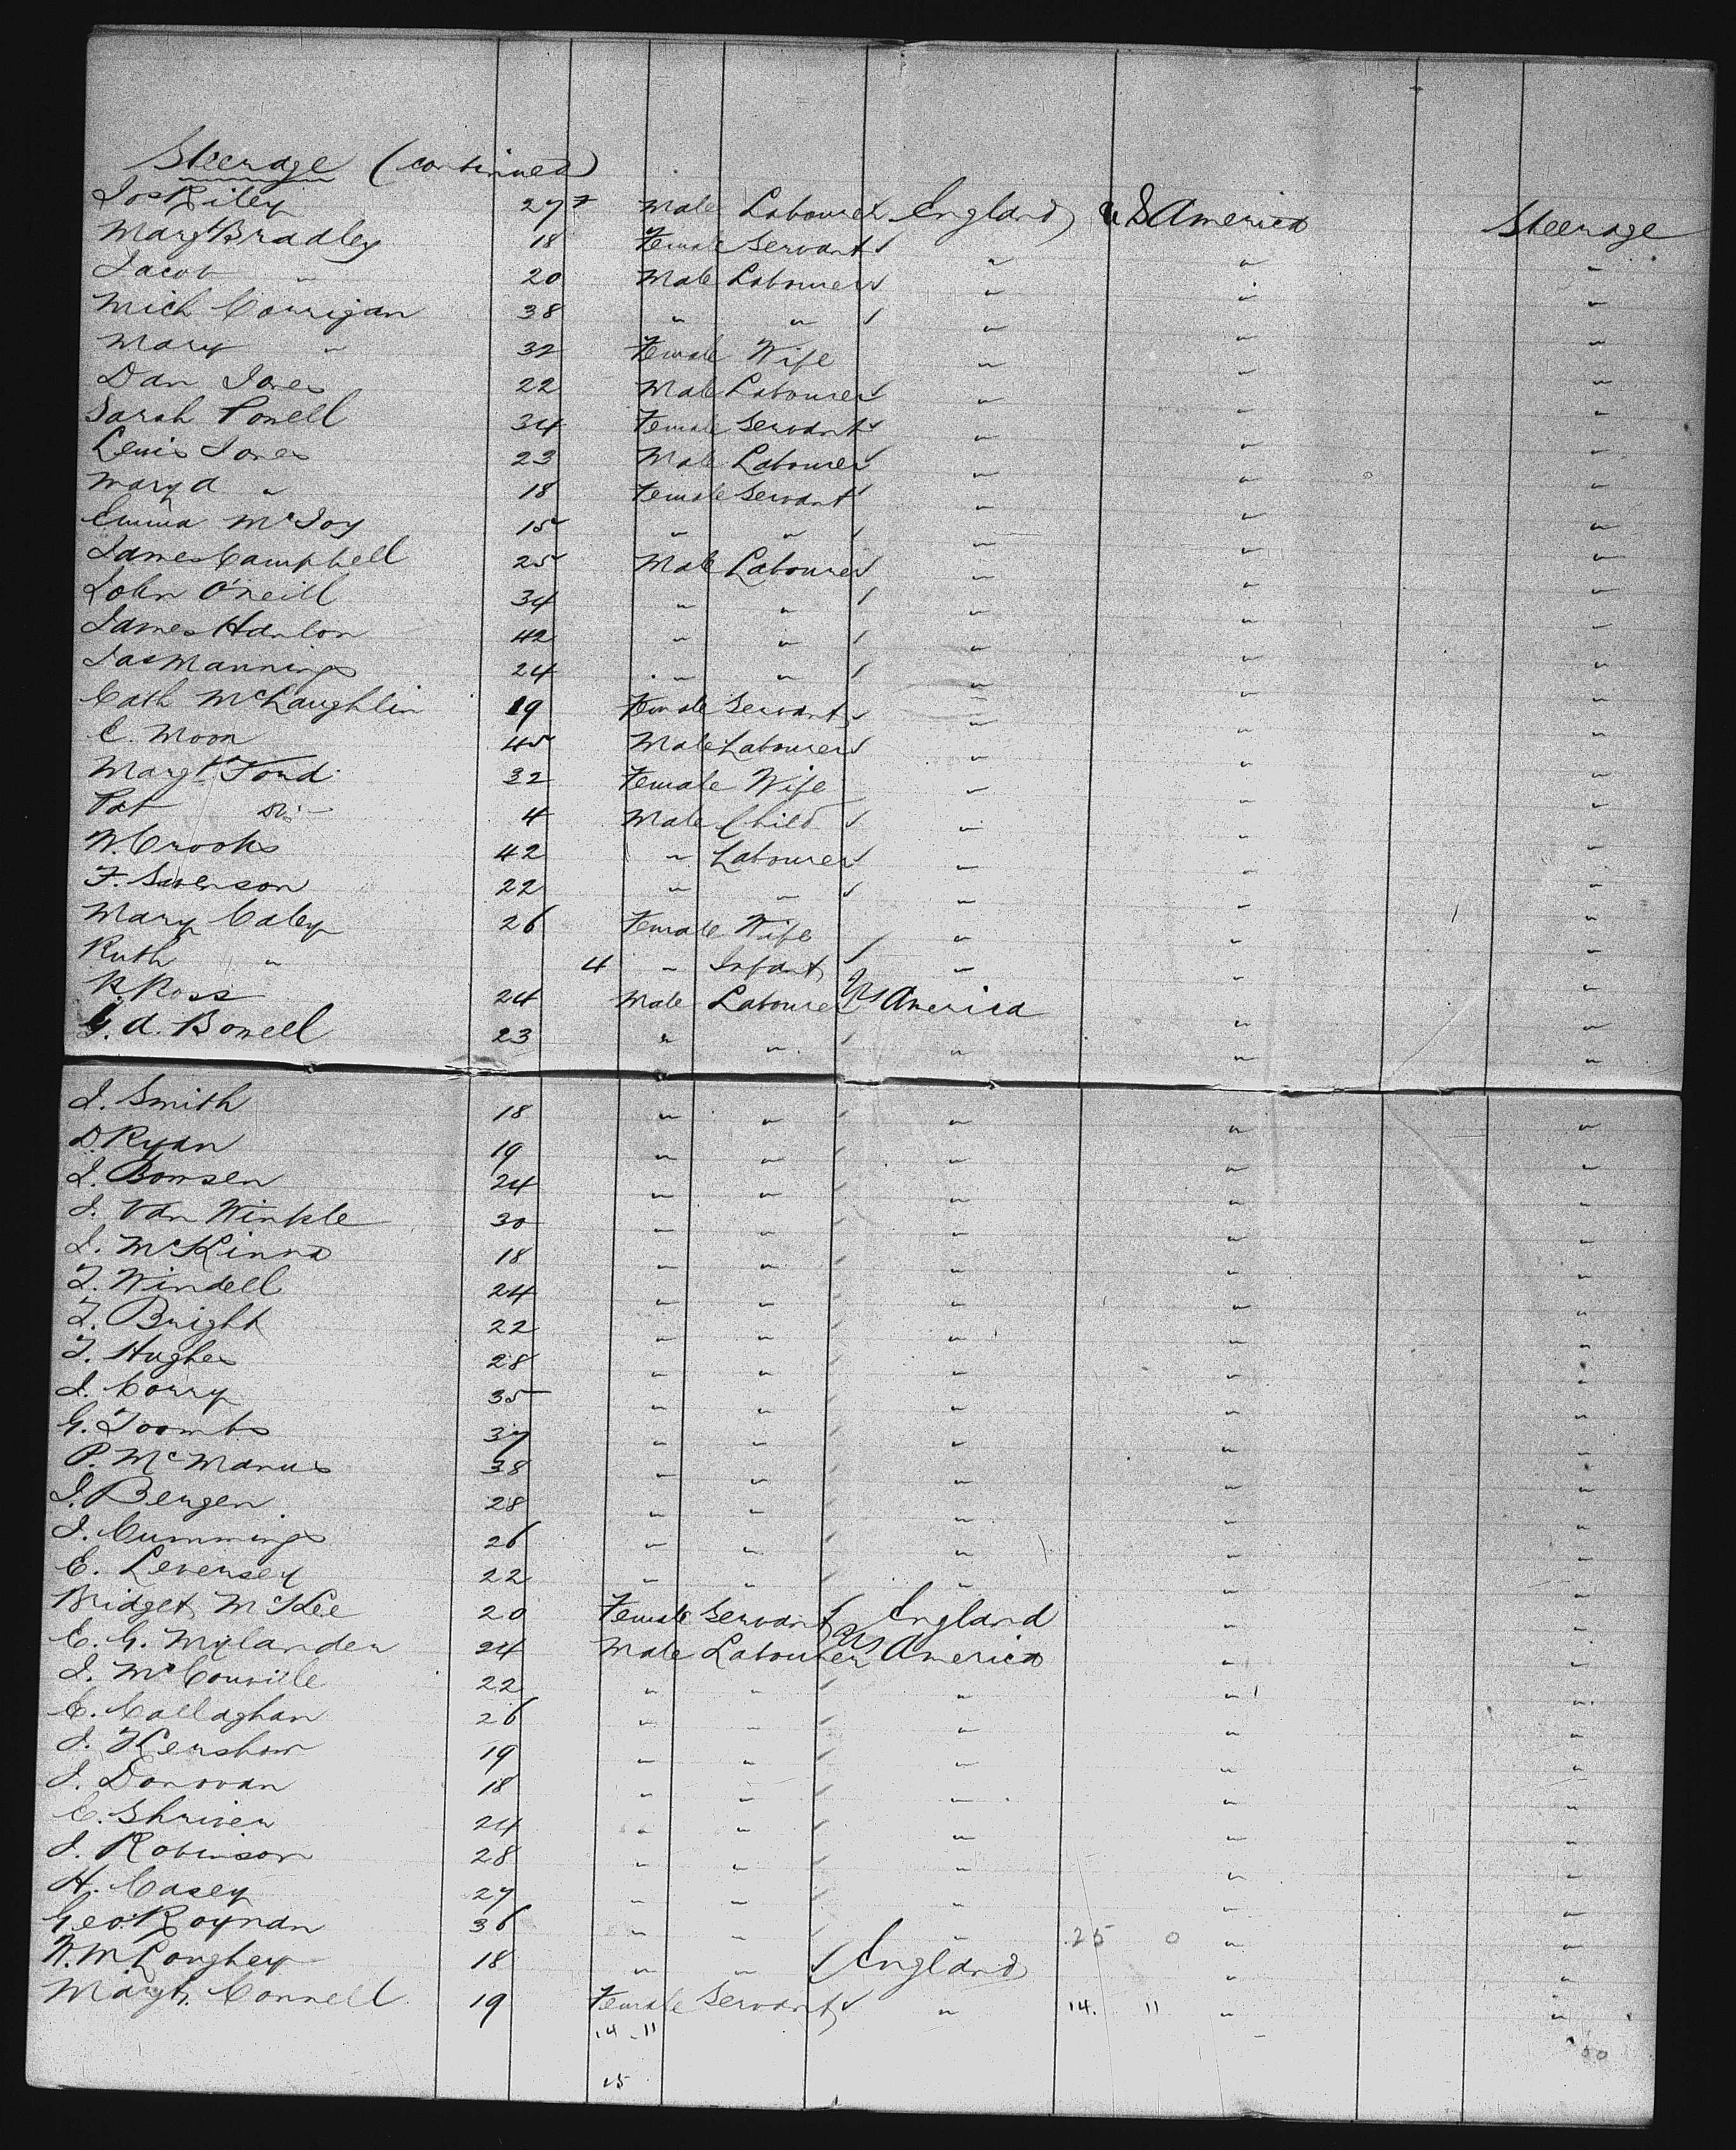 Steerage (continued)
Jos Riley 27 Male Labourer England U S America Steerage
Margt Bradley 18 Female Servant " " "
Jacob " 20 Male Labourer " " "
Mich Corrigan 38 " " " " "
Mary " 32 Female Wife " " "
Dan Jones 22 Male Labourer " " "
Sarah Powell 34 Female Servant " " "
Lewis Jones 23 Male Labourer " " "
Mary A " 18 Female Servant " " "
Emma McJoy 15 " " " " "
James Campbell 25 Male Labourer " " "
John O'Neill 34 " " " " "
James Hanlon 42 " " " " "
Jas Mannings 24 " " " " "
Cath McLaughlin 19 Female Servant " " "
C. Moon 45 Male Labourer " " "
Margt Ford 32 Female Wife " " "
Pat Do 4 Male Child " " "
W. Crooks 42 " Labourer " " "
F. Swenson 22 " " " " "
Mary Caley 26 Female Wife " " "
Ruth " 4 " Infant " " "
R. Ross 24 Male Labourer US America " "
G. A. Bowell 23 " " " " "
J. Smith 18 " " " " "
D. Ryan 19 " " " " "
J. Bowsen 24 " " " " "
J. Van Winkle 30 " " " " "
J. McKinna 18 " " " " "
T. Windell 24 " " " " "
T. Bright 22 " " " " "
T. Hughes 28 " " " " "
J. Corry 35 " " " " "
G. Toombs 37 " " " " "
P. McManus 38 " " " " "
J. Bergen 28 " " " " "
J. Cummings 26 " " " " "
E. Levensey 22 " " " " "
Bridget McKee 20 Female Servant England " "
C. G. Mylander 24 Male Labourer US America " "
J. McConville 22 " " " " "
C. Callaghan 26 " " " " "
J. Kershaw 19 " " " " "
J. Donovan 18 " " " " "
C. Shriver 24 " " " " "
J. Robinson 28 " " " " "
H. Casey 27 " " " " "
Geo. Roynan 36 " " " 25 0 " "
W. McLoughey 18 " " England " "
Margt. Connell 19 Female Servant " 14. 11 " "
14 - 11
50
15